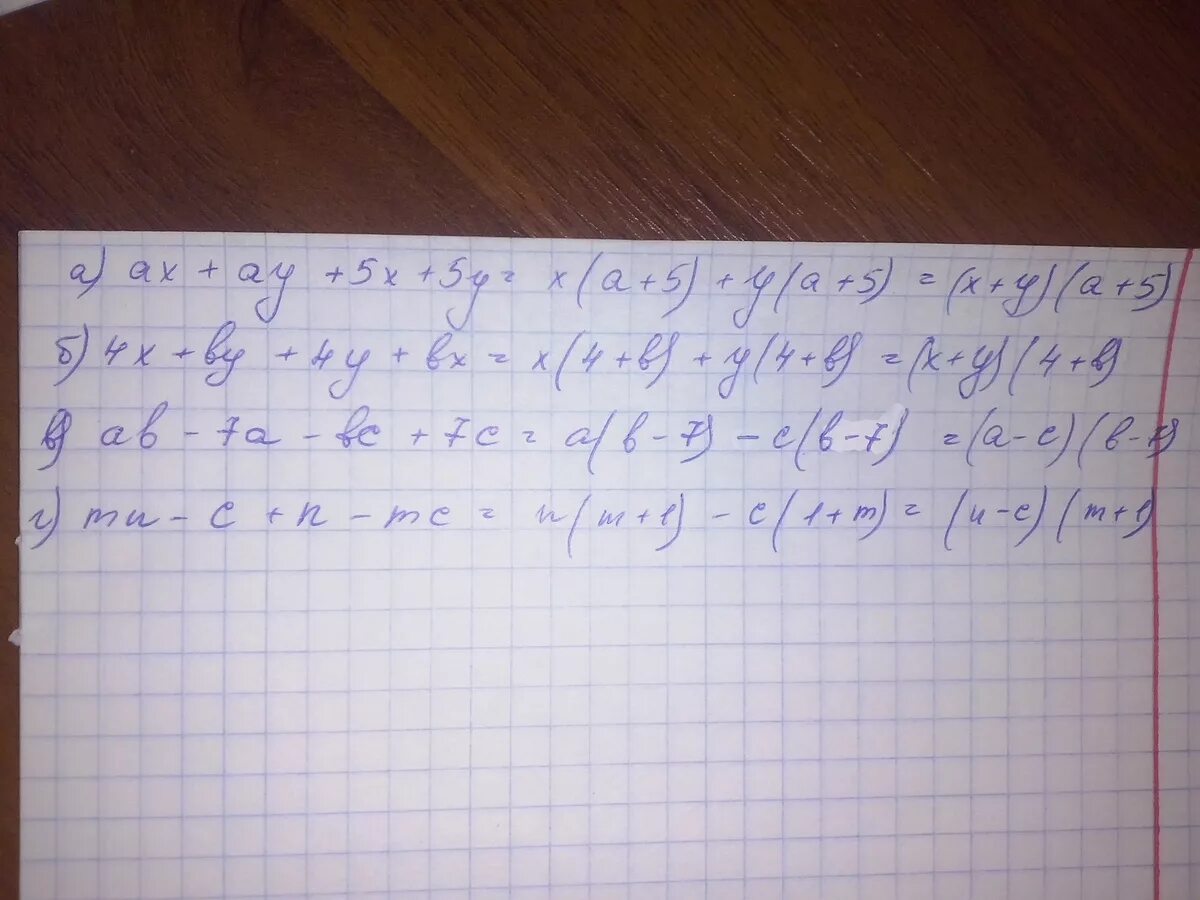 а) ax + ay + 5x + 5y = x(a+5) + y(a+5) = (x+y)(a+5)
б) 4x + вy + 4y + вx = x(4+в) + y(4+в) = (x+y)(4+в)
в) aв - 7a - вc + 7c = a(в-7) - c(в-7) = (a-c)(в-7)
г) mn - c + n - mc = n(m+1) - c(1+m) = (n-c)(m+1)